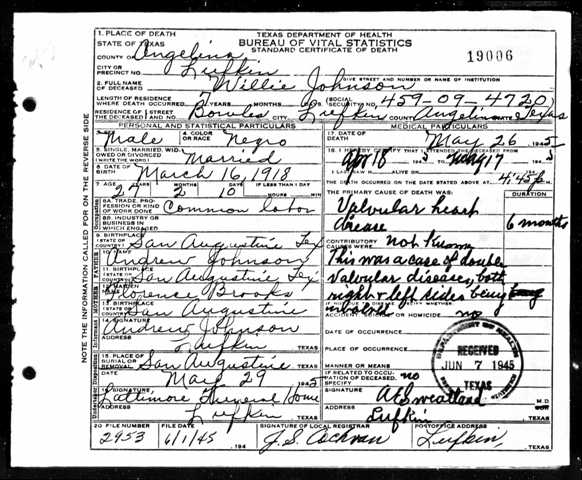 TEXAS DEPARTMENT OF HEALTH
BUREAU OF VITAL STATISTICS
STANDARD CERTIFICATE OF DEATH
19006
1. PLACE OF DEATH
STATE OF TEXAS
COUNTY OF Angelina
CITY OR PRECINCT NO. Lufkin
GIVE STREET AND NUMBER OR NAME OF INSTITUTION
2. FULL NAME OF DECEASED Willie Johnson
LENGTH OF RESIDENCE WHERE DEATH OCCURRED 7 YEARS MONTHS DAYS SOCIAL SECURITY NO. 459-09-4720
RESIDENCE OF THE DECEASED Lufkin COUNTY Angelina STATE Texas
PERSONAL AND STATISTICAL PARTICULARS
3. SEX Male
4. COLOR OR RACE Negro
5. SINGLE, MARRIED, WIDOWED OR DIVORCED (WRITE THE WORD) Married
6. DATE OF BIRTH March 16, 1918
7. AGE YEARS 27 MONTHS 2 DAYS 10 IF LESS THAN 1 DAY HOURS MIN
8A. TRADE, PROFESSION OR KIND OF WORK DONE Common labor
8B. INDUSTRY OR BUSINESS IN WHICH ENGAGED
9. BIRTHPLACE (STATE OR COUNTRY) San Augustine Tex
10. NAME Andrew Johnson
11. BIRTHPLACE (STATE OR COUNTRY) San Augustine Tex
12. MAIDEN NAME Florence Brooks
13. BIRTHPLACE San Augustine
14. SIGNATURE Andrew Johnson
ADDRESS Lufkin TEXAS
15. PLACE OF BURIAL OR REMOVAL San Augustine TEXAS
DATE May 29 1945
SIGNATURE Lattimore Funeral Home
ADDRESS Lufkin TEXAS
MEDICAL PARTICULARS
17. DATE OF DEATH May 26 1945
18. I HEREBY CERTIFY THAT I ATTENDED THE DECEASED FROM
I LAST SAW H ALIVE ON
THE DEATH OCCURRED ON THE DATE STATED ABOVE AT 4:45 P.M.
THE PRIMARY CAUSE OF DEATH WAS:
DURATION
Valvular heart
disease 6 months
CONTRIBUTORY CAUSES not known
This was a case of double
Valvular disease, both
right & left sides being
involved
ACCIDENT, SUICIDE OR HOMICIDE no
DATE OF OCCURRENCE
PLACE OF OCCURRENCE
MANNER OR MEANS
IF RELATED TO OCCUPATION OF DECEASED, SPECIFY no
SIGNATURE M.D.
ADDRESS Lufkin TEXAS
DEPARTMENT OF HEALTH
RECEIVED
JUN 7 1945
TEXAS
20. FILE NUMBER 2953
FILE DATE 6/1/45 194
SIGNATURE OF LOCAL REGISTRAR J.S. Cochran
POSTOFFICE ADDRESS Lufkin, TEXAS
NOTE THE INFORMATION CALLED FOR ON THE REVERSE SIDE